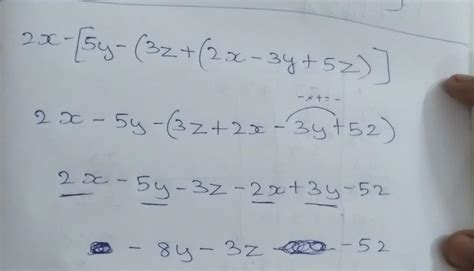 2x-[5y-(3z+(2x-3y+5z)]
-x+=-
2x-5y-(3z+2x-3y+5z)
2x-5y-3z-2x+3y-5z
-8y-3z -5z